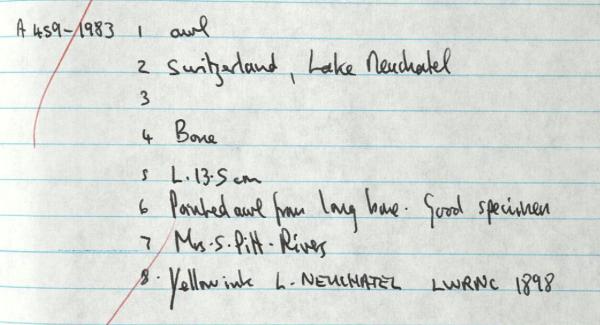 A 459-1983 1 awl
2 Switzerland, Lake Neuchatel
3
4 Bone
5 L. 13.5 cm
6 Pointed awl from long bone. Good specimen
7 Mrs. S. Pitt-Rivers
8. Yellow ink L. NEUCHATEL LWRNC 1898